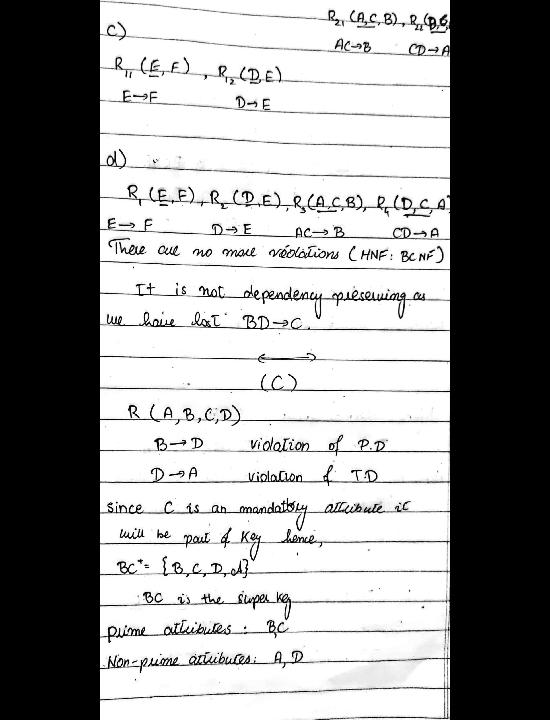 R₂₁ (A,C,B), R₂₂ (D,C,
c)
AC→B CD→A
R₁₁ (E, F) , R₁₂ (D,E)
E→F D→E
d)
R₁ (E,F), R₂ (D,E), R₃ (A,C,B), R₄ (D,C,A)
E→F D→E AC→B CD→A
There are no more violations (HNF: BCNF)
It is not dependency preserving as
we have lost BD→C.
(C)
R (A,B,C,D)
B→D violation of P.D
D→A violation of T.D
Since C is an mandatory attribute it
will be part of key hence,
BC⁺= {B,C,D,A}
BC is the super key
prime attributes : B,C
Non-prime attributes: A, D